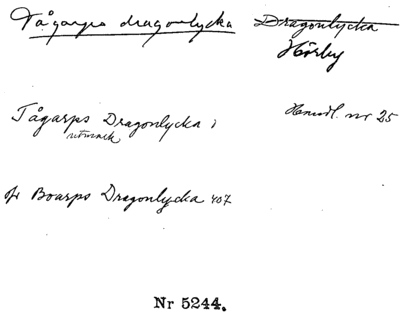 Tågarps dragonlycka Dragonlycka
Hörby
Tågarps Dragonlycka i Handl. nr 25
utmark
jfr Boarps Dragonlycka 407
Nr 5244.